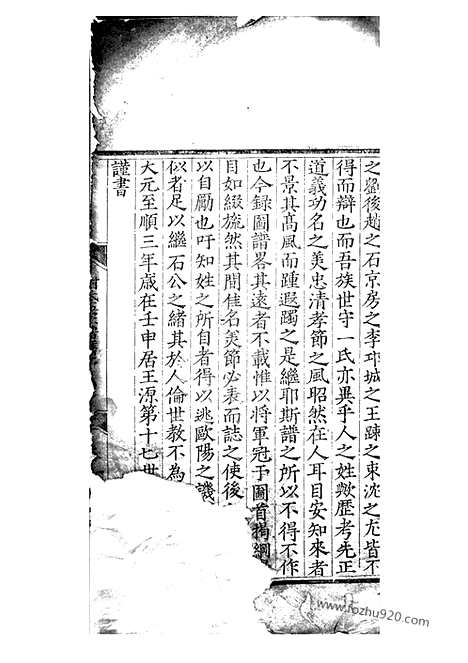 之劉後趙之石京房之李邛城之王踈之束沈之尤皆不
得而辯也而吾族世守一氏亦異乎人之姓歟歷考先正
道義功名之美忠清孝節之風昭然在人耳目安知來者
不景其高風而踵遐躅之是繼耶斯譜之所以不得不作
也今録圖譜畧其遠者不載惟以將軍冠于圖首揭綱
目如綴旒然其間佳名美節必表而誌之使後
以自勵也吁知姓之所自者得以逃歐陽之譏
似者足以繼石公之緒其於人倫世教不為
大元至順三年歲在壬申居王源第十七世
謹書
www.fozhu920.com